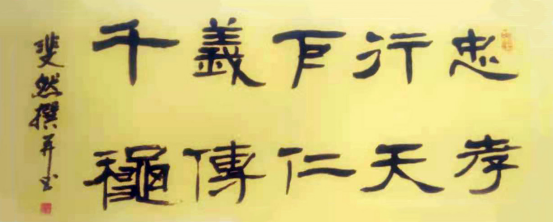 忠孝
行天
下仁
義傳
千穐
斐然撰并书